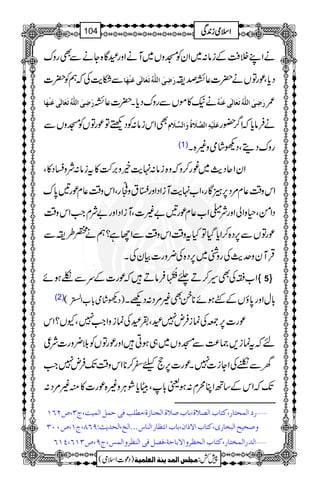 اسلامی زندگی 104
نے اپنے زمانہ خلافت میں ان کو مسجدوں میں آنے اور عید گاہ جانے سے بھی روک
دیا، عورتوں نے حضرت عائشہ صدیقہ رَضِیَ اللّٰہُ تَعَالٰی عَنْہَا سے شکایت کی کہ ہم کو حضرت
عمر رَضِیَ اللّٰہُ تَعَالٰی عَنْہُ نے نیک کاموں سے روک دیا۔ حضرت عائشہ رَضِیَ اللّٰہُ تَعَالٰی عَنْہَا
نے فرمایا کہ اگر حضور عَلَیْہِ الصَّلٰوۃُ وَالسَّلَام بھی اس زمانہ کو دیکھتے تو عورتوں کو مسجدوں سے
روک دیتے، دیکھو شامی وغیرہ۔(1)
ان احادیث میں غور کرو کہ وہ زمانہ نہایت خیر و برکت کا، یہ زمانہ شر و فساد کا،
اس وقت عام مرد پرہیزگار، اب نہایت آزاد اور فساق و فجار، اس وقت عام عورتیں پاک
دامن، حیا والی اور شرمیلی اب عام عورتیں بے غیرت، آزاد اور بے شرم جب اس وقت
عورتوں سے پردہ کرایا گیا تو کیا یہ وقت اس وقت سے اچھا ہے؟ ہم نے مختصر طریقہ سے
قرآن و حدیث کی روشنی میں پردہ کی ضرورت بیان کی۔
{5} اب فقہ کی بھی سیر کرتے چلئے فقہاء فرماتے ہیں کہ عورت کے سر سے نکلے ہوئے
بال اور پاؤں کے کٹے ہوئے ناخن بھی غیر مرد نہ دیکھے۔ (دیکھو شامی باب الستر)(2)
عورت پر جمعہ کی نماز فرض نہیں عید، بقر عید کی نماز واجب نہیں، کیوں، ؟ اس
لئے کہ یہ نمازیں جماعت سے مسجدوں میں ہی ہوتی ہیں اور عورتوں کو بلا ضرورت شرعی
گھر سے نکلنے کی اجازت نہیں۔ عورت پر حج کیلئے سفر کرنا اس وقت تک فرض نہیں جب
تک کہ اس کے ساتھ اپنا محرم نہ ہو یعنی باپ، بیٹا، یا شوہر وغیرہ عورت کا منہ غیر مرد نہ
رد المحتار، کتاب الصلاۃ، باب صلاۃ الجنازۃ، مطلب فی حمل المیت، ج۳، ص۱۶۶
وصحیح البخاری، کتاب الاذان، باب انتظار الناس... الخ، الحدیث: ۸۶۹، ج۱، ص۳۰۰
الدر المختار، کتاب الحظر والاباحۃ، فصل فی النظر والمس، ج۹، ص۶۱۳، ۶۱۴
پیش کش: مجلس المدینۃ العلمیۃ (دعوت اسلامی)